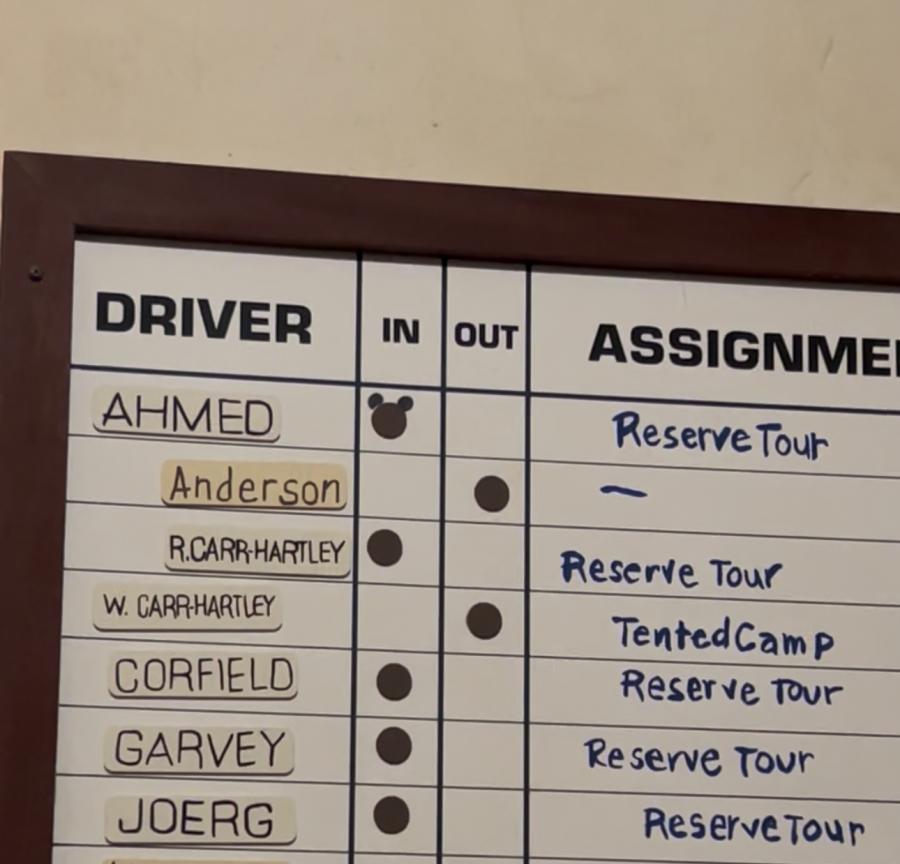 DRIVER IN OUT ASSIGNME
AHMED Reserve Tour
Anderson —
R.CARR-HARTLEY Reserve Tour
W. CARR-HARTLEY Tented Camp
CORFIELD Reserve Tour
GARVEY Reserve Tour
JOERG Reserve Tour